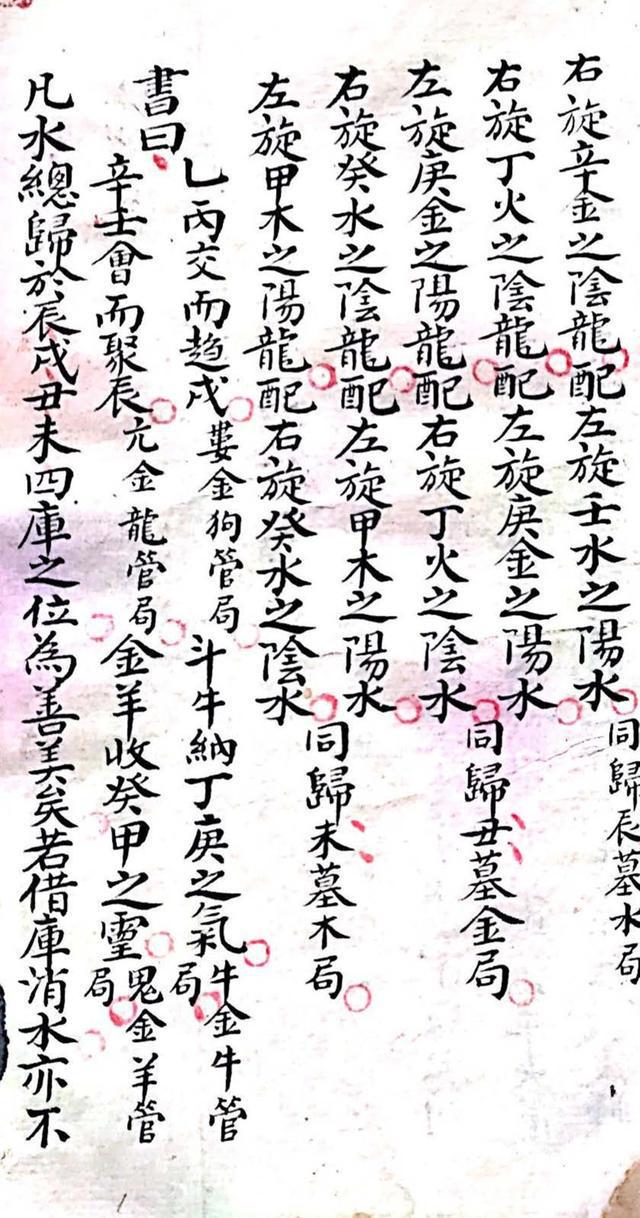 右旋辛金之陰龍配左旋壬水之陽水
同歸辰墓水局
右旋丁火之陰龍配左旋庚金之陽水
左旋庚金之陽龍配右旋丁火之陰水
同歸丑墓金局
右旋癸水之陰龍配左旋甲木之陽水
左旋甲木之陽龍配右旋癸水之陰水
同歸未墓木局
書曰
乙丙交而趋戍婁金狗管局斗牛納丁庚之氣牛金牛管局
辛壬會而聚辰亢金龍管局金羊收癸甲之靈鬼金羊管局
凡水總歸於辰戍丑未四庫之位為善美矣若借庫消水亦不